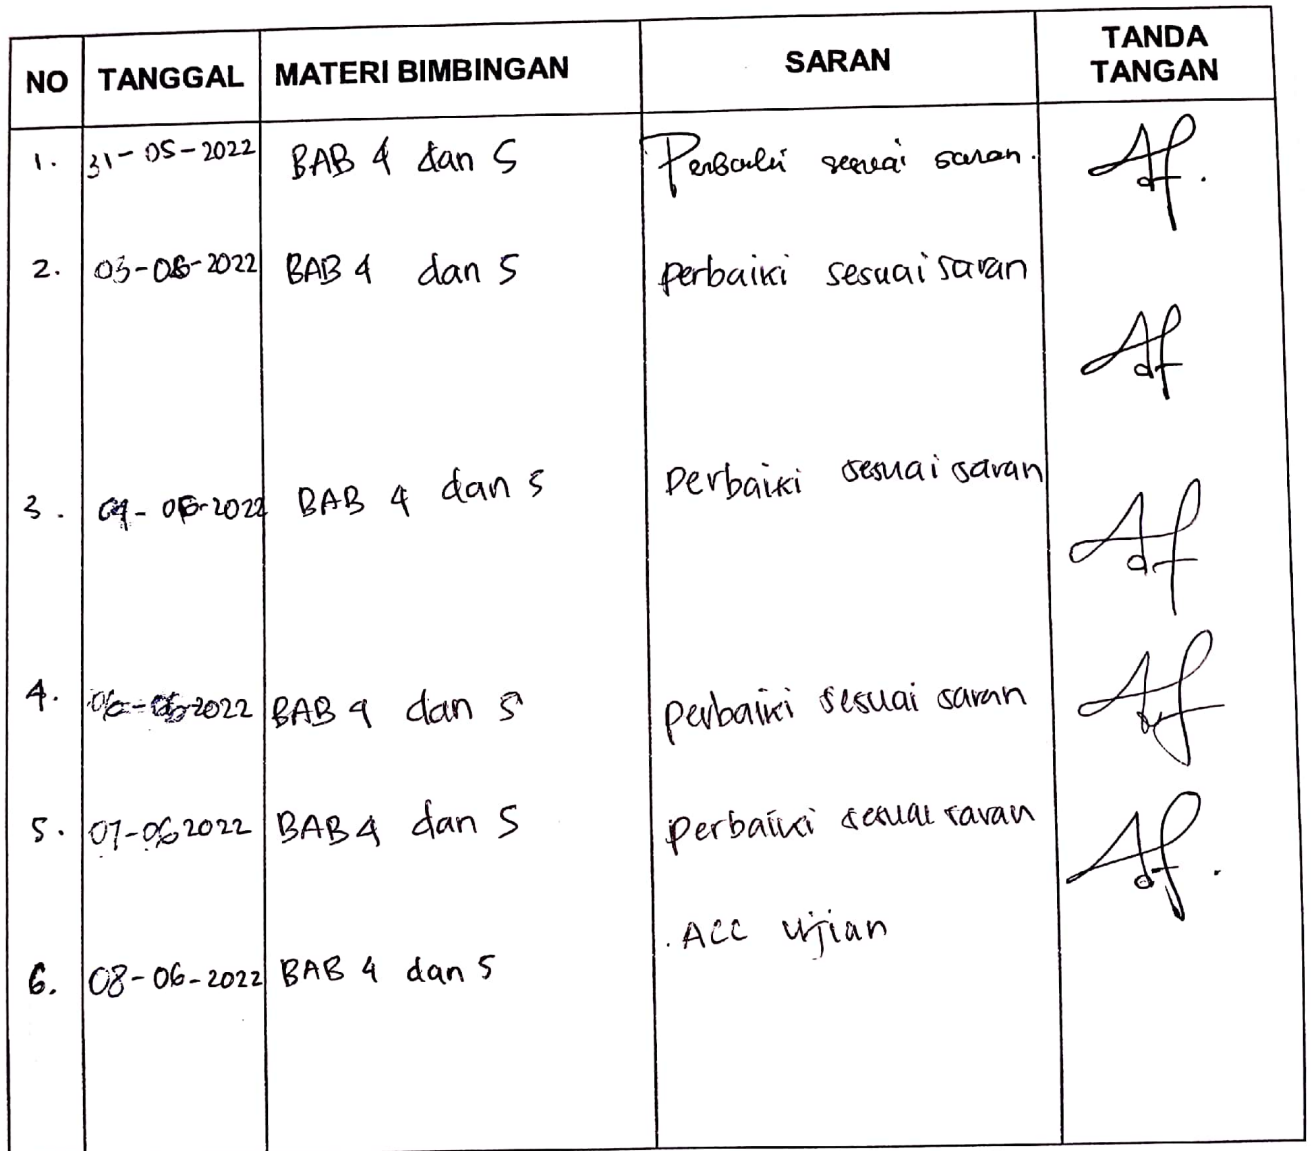 NO TANGGAL MATERI BIMBINGAN SARAN TANDA TANGAN
1. 31-05-2022 BAB 4 dan 5 Perbaiki sesuai saran.
2. 03-06-2022 BAB 4 dan 5 perbaiki sesuai saran
3. BAB 4 dan 5 perbaiki sesuai saran
4. BAB 4 dan 5 perbaiki sesuai saran
5. 07-06 2022 BAB 4 dan 5 perbaiki sesuai saran
6. 08-06-2022 BAB 4 dan 5 . ACC ujian